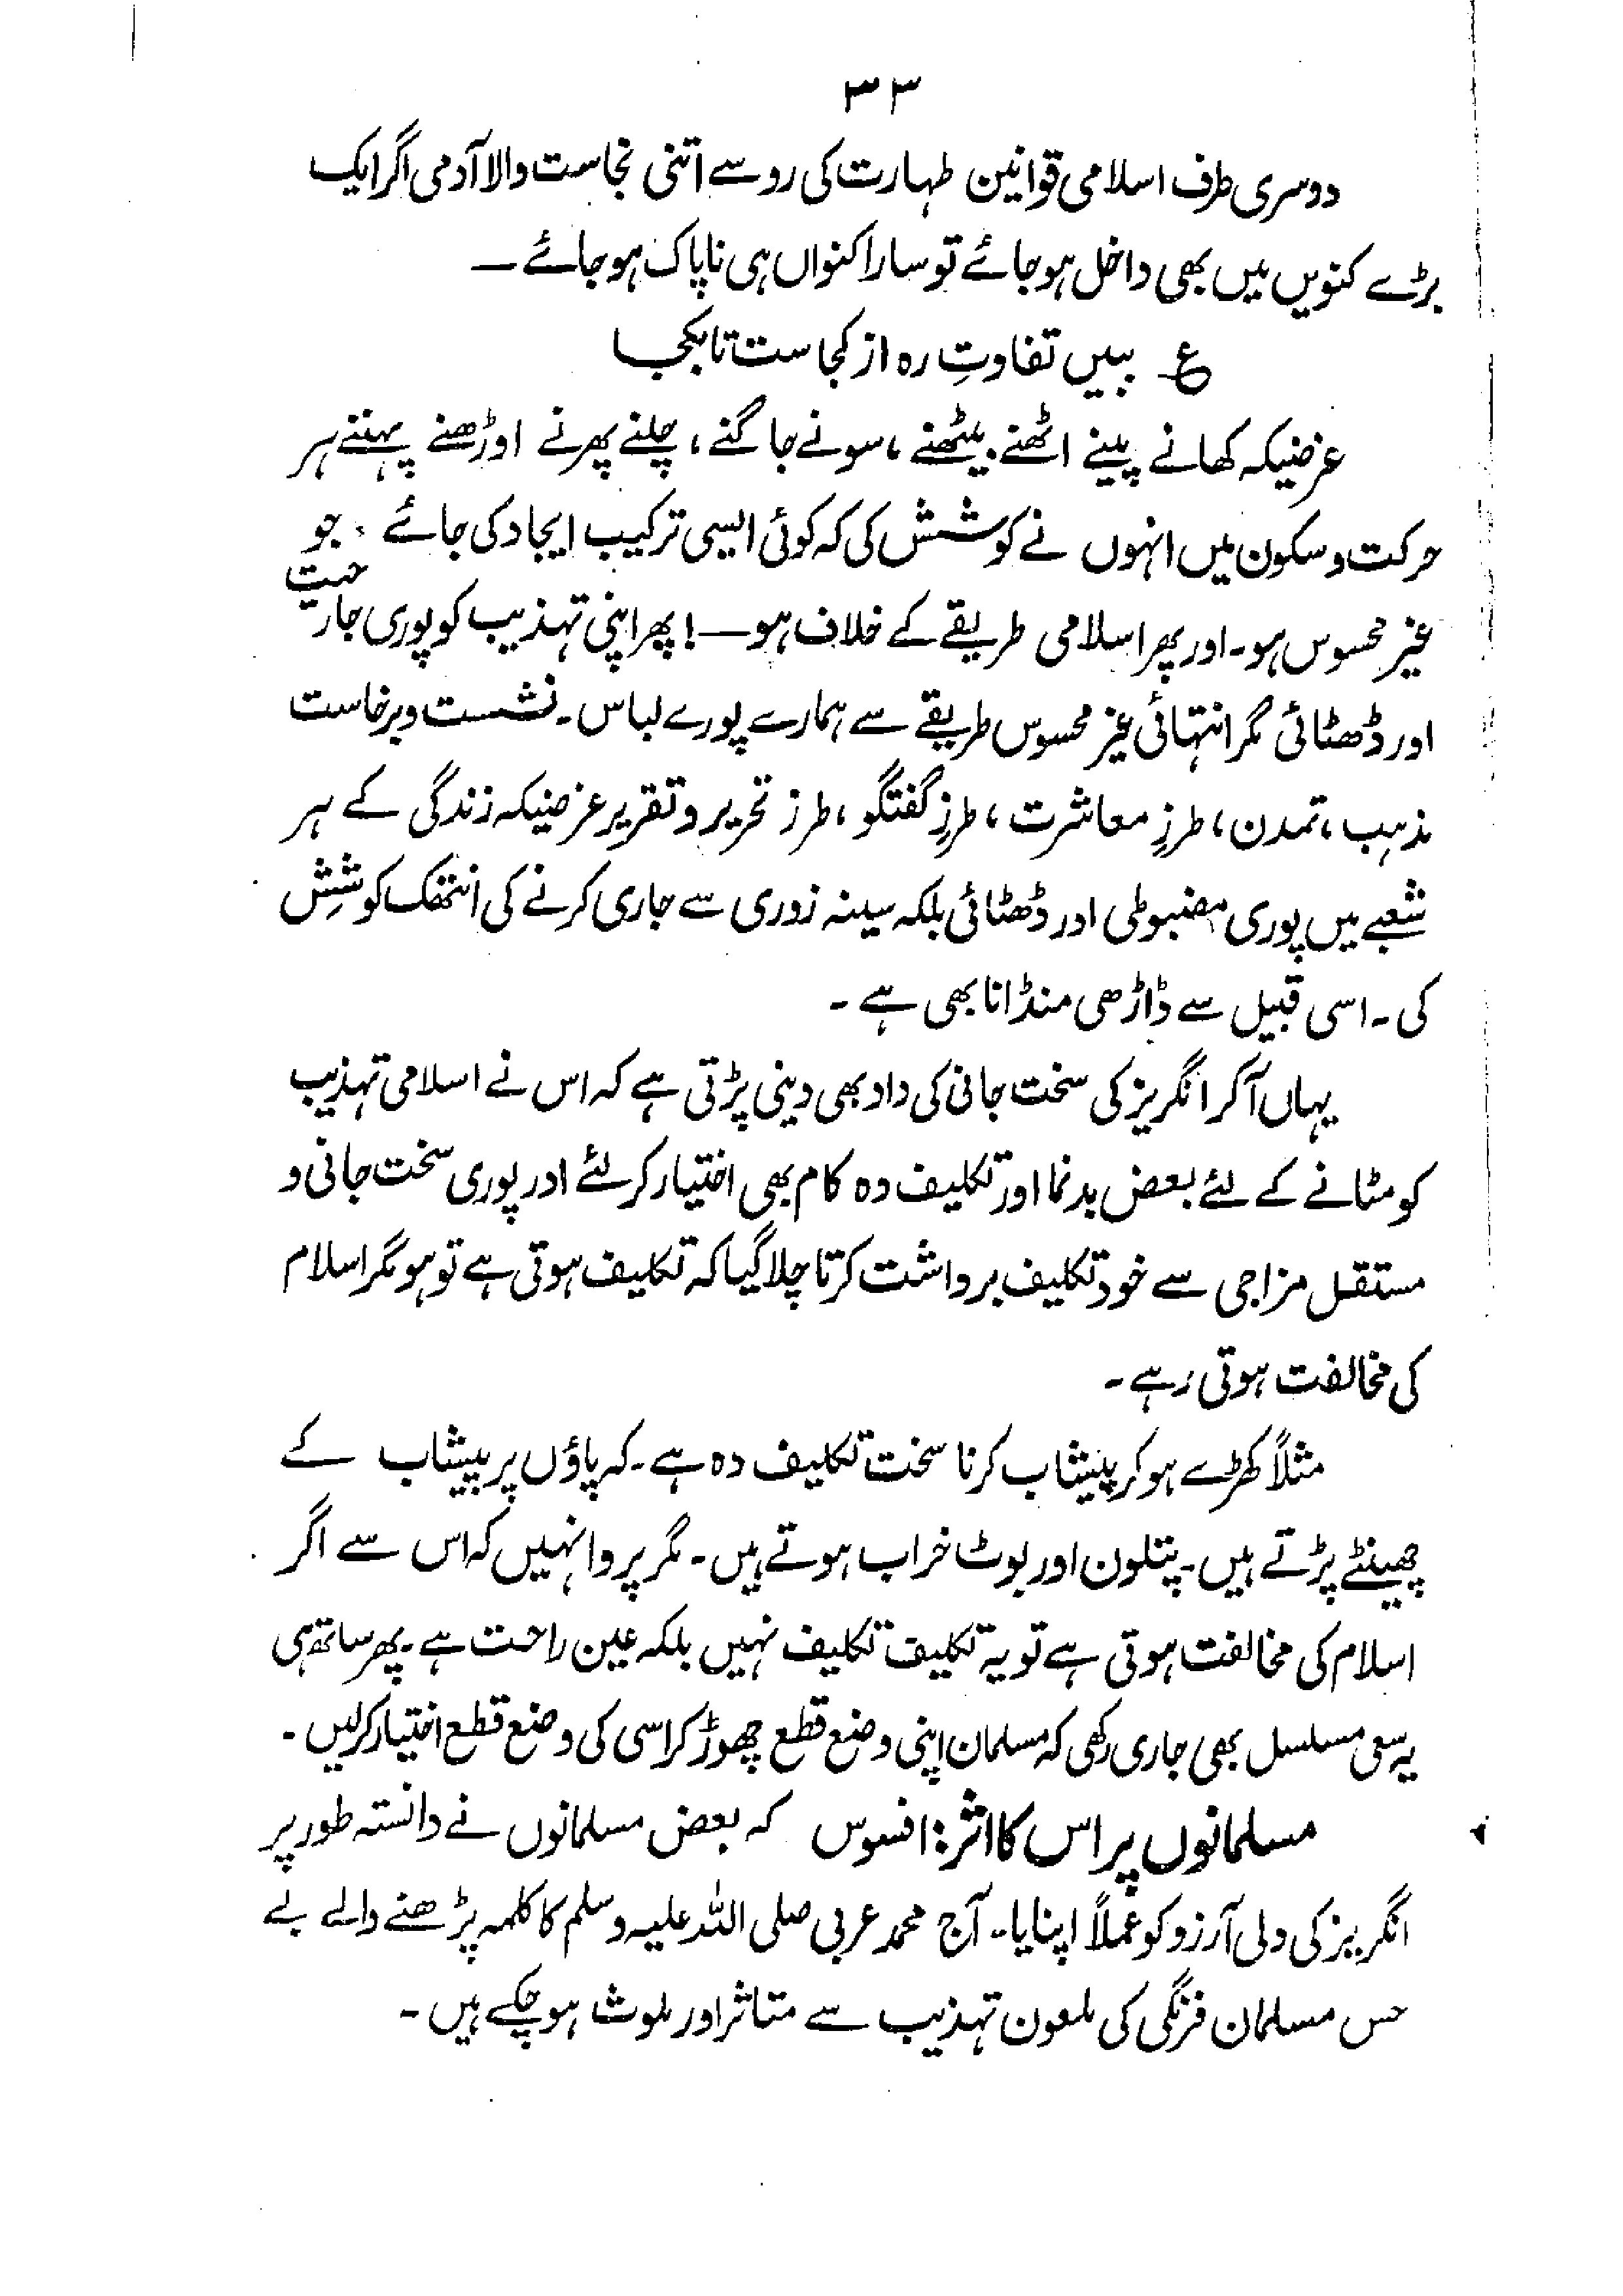 ۳۳
دوسری طرف اسلامی قوانین طہارت کی رو سے اتنی نجاست والا آدمی اگر ایک
بڑے کنویں میں بھی داخل ہو جائے تو سارا کنواں ہی ناپاک ہو جائے ــ
ع ببیں تفاوتِ رہ از کجا ست تا بکجا
غرضیکہ کھانے پینے اٹھنے بیٹھنے ، سونے جاگنے ، چلنے پھرنے اوڑھنے پہننے ہر
حرکت و سکون میں انہوں نے کوشش کی کہ کوئی ایسی ترکیب ایجاد کی جائے ، جو
غیر محسوس ہو۔ اور پھر اسلامی طریقے کے خلاف ہو ــ! پھر اپنی تہذیب کو پوری جارحیت
اور ڈھٹائی مگر انتہائی غیر محسوس طریقے سے ہمارے پورے لباس۔ نشست و برخاست
مذہب ، تمدن ، طرزِ معاشرت ، طرزِ گفتگو ، طرز تحریر و تقریر غرضیکہ زندگی کے ہر
شعبے میں پوری مضبوطی اور ڈھٹائی بلکہ سینہ زوری سے جاری کرنے کی انتھک کوشِش
کی۔ اسی قبیل سے ڈاڑھی منڈانا بھی ہے ۔
یہاں آکر انگریز کی سخت جانی کی داد بھی دینی پڑتی ہے کہ اس نے اسلامی تہذیب
کو مٹانے کے لئے بعض بدنما اور تکلیف دہ کام بھی اختیار کر لئے اور پوری سخت جانی و
مستقل مزاجی سے خود تکلیف برداشت کرتا چلا گیا کہ تکلیف ہوتی ہے تو ہو مگر اسلام
کی مخالفت ہوتی رہے ۔
مثلاً کھڑے ہو کر پیشاب کرنا سخت تکلیف دہ ہے۔ کہ پاؤں پر پیشاب کے
چھینٹے پڑتے ہیں۔ پتلون اور بوٹ خراب ہوتے ہیں۔ مگر پروا نہیں کہ اس سے اگر
اسلام کی مخالفت ہوتی ہے تو یہ تکلیف تکلیف نہیں بلکہ عین راحت ہے۔ پھر ساتھ ہی
یہ سعی مسلسل بھی جاری رکھی کہ مسلمان اپنی وضع قطع چھوڑ کر اسی کی وضع قطع اختیار کرلیں ۔
مسلمانوں پر اس کا اثر: افسوس کہ بعض مسلمانوں نے دانستہ طور پر
انگریز کی دلی آرزو کو عملاً اپنایا۔ آج محمد عربی صلی اللہ علیہ وسلم کا کلمہ پڑھنے والے بے
حس مسلمان فرنگی کی ملعون تہذیب سے متاثر اور ملوث ہو چکے ہیں ۔